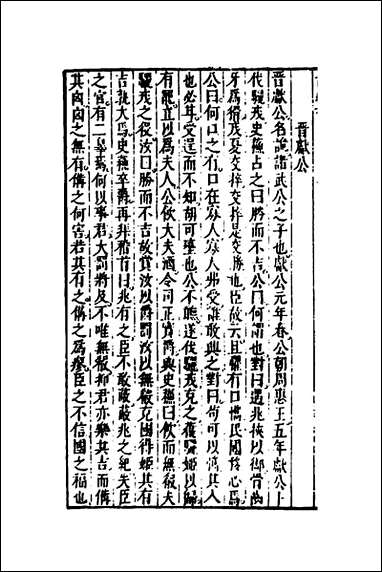 晉獻公
晉獻公名詭諸武公之子也獻公元年春公朝周惠王五年獻公卜
伐驪戎史蘇占之曰勝而不吉公曰何謂也對曰遇兆挾以銜骨齒
牙為猾戎夏交捽交捽是交勝也臣故云且懼有口㩗民國移心焉
公曰何口之有口在寡人寡人弗受誰敢興之對曰苟可以㩗其入
也必甘受逞而不知胡可壅也公不聽遂伐驪戎克之獲驪姬以歸
有寵立以為夫人公飲大夫酒令司正實爵與史蘇曰飲而無殽夫
驪戎之役汝曰勝而不吉故賞汝以爵罰汝以無殽克國得妃其有
吉孰大焉史蘇卒爵再拜稽首曰兆有之臣不敢蔽蔽兆之紀失臣
之官有二辠焉何以事君大罰將及不唯無殽抑君亦樂其吉而備
其凶凶之無有備之何害若其有之備之為瘳臣之不信國之福也